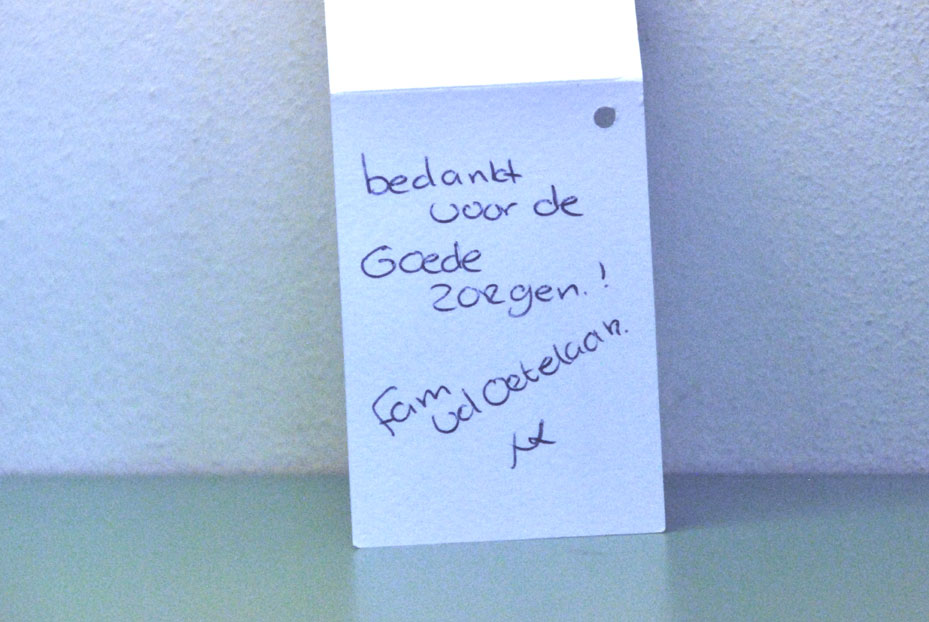 bedankt
voor de
Goede
zorgen.!
Fam
vd Oetelaar.